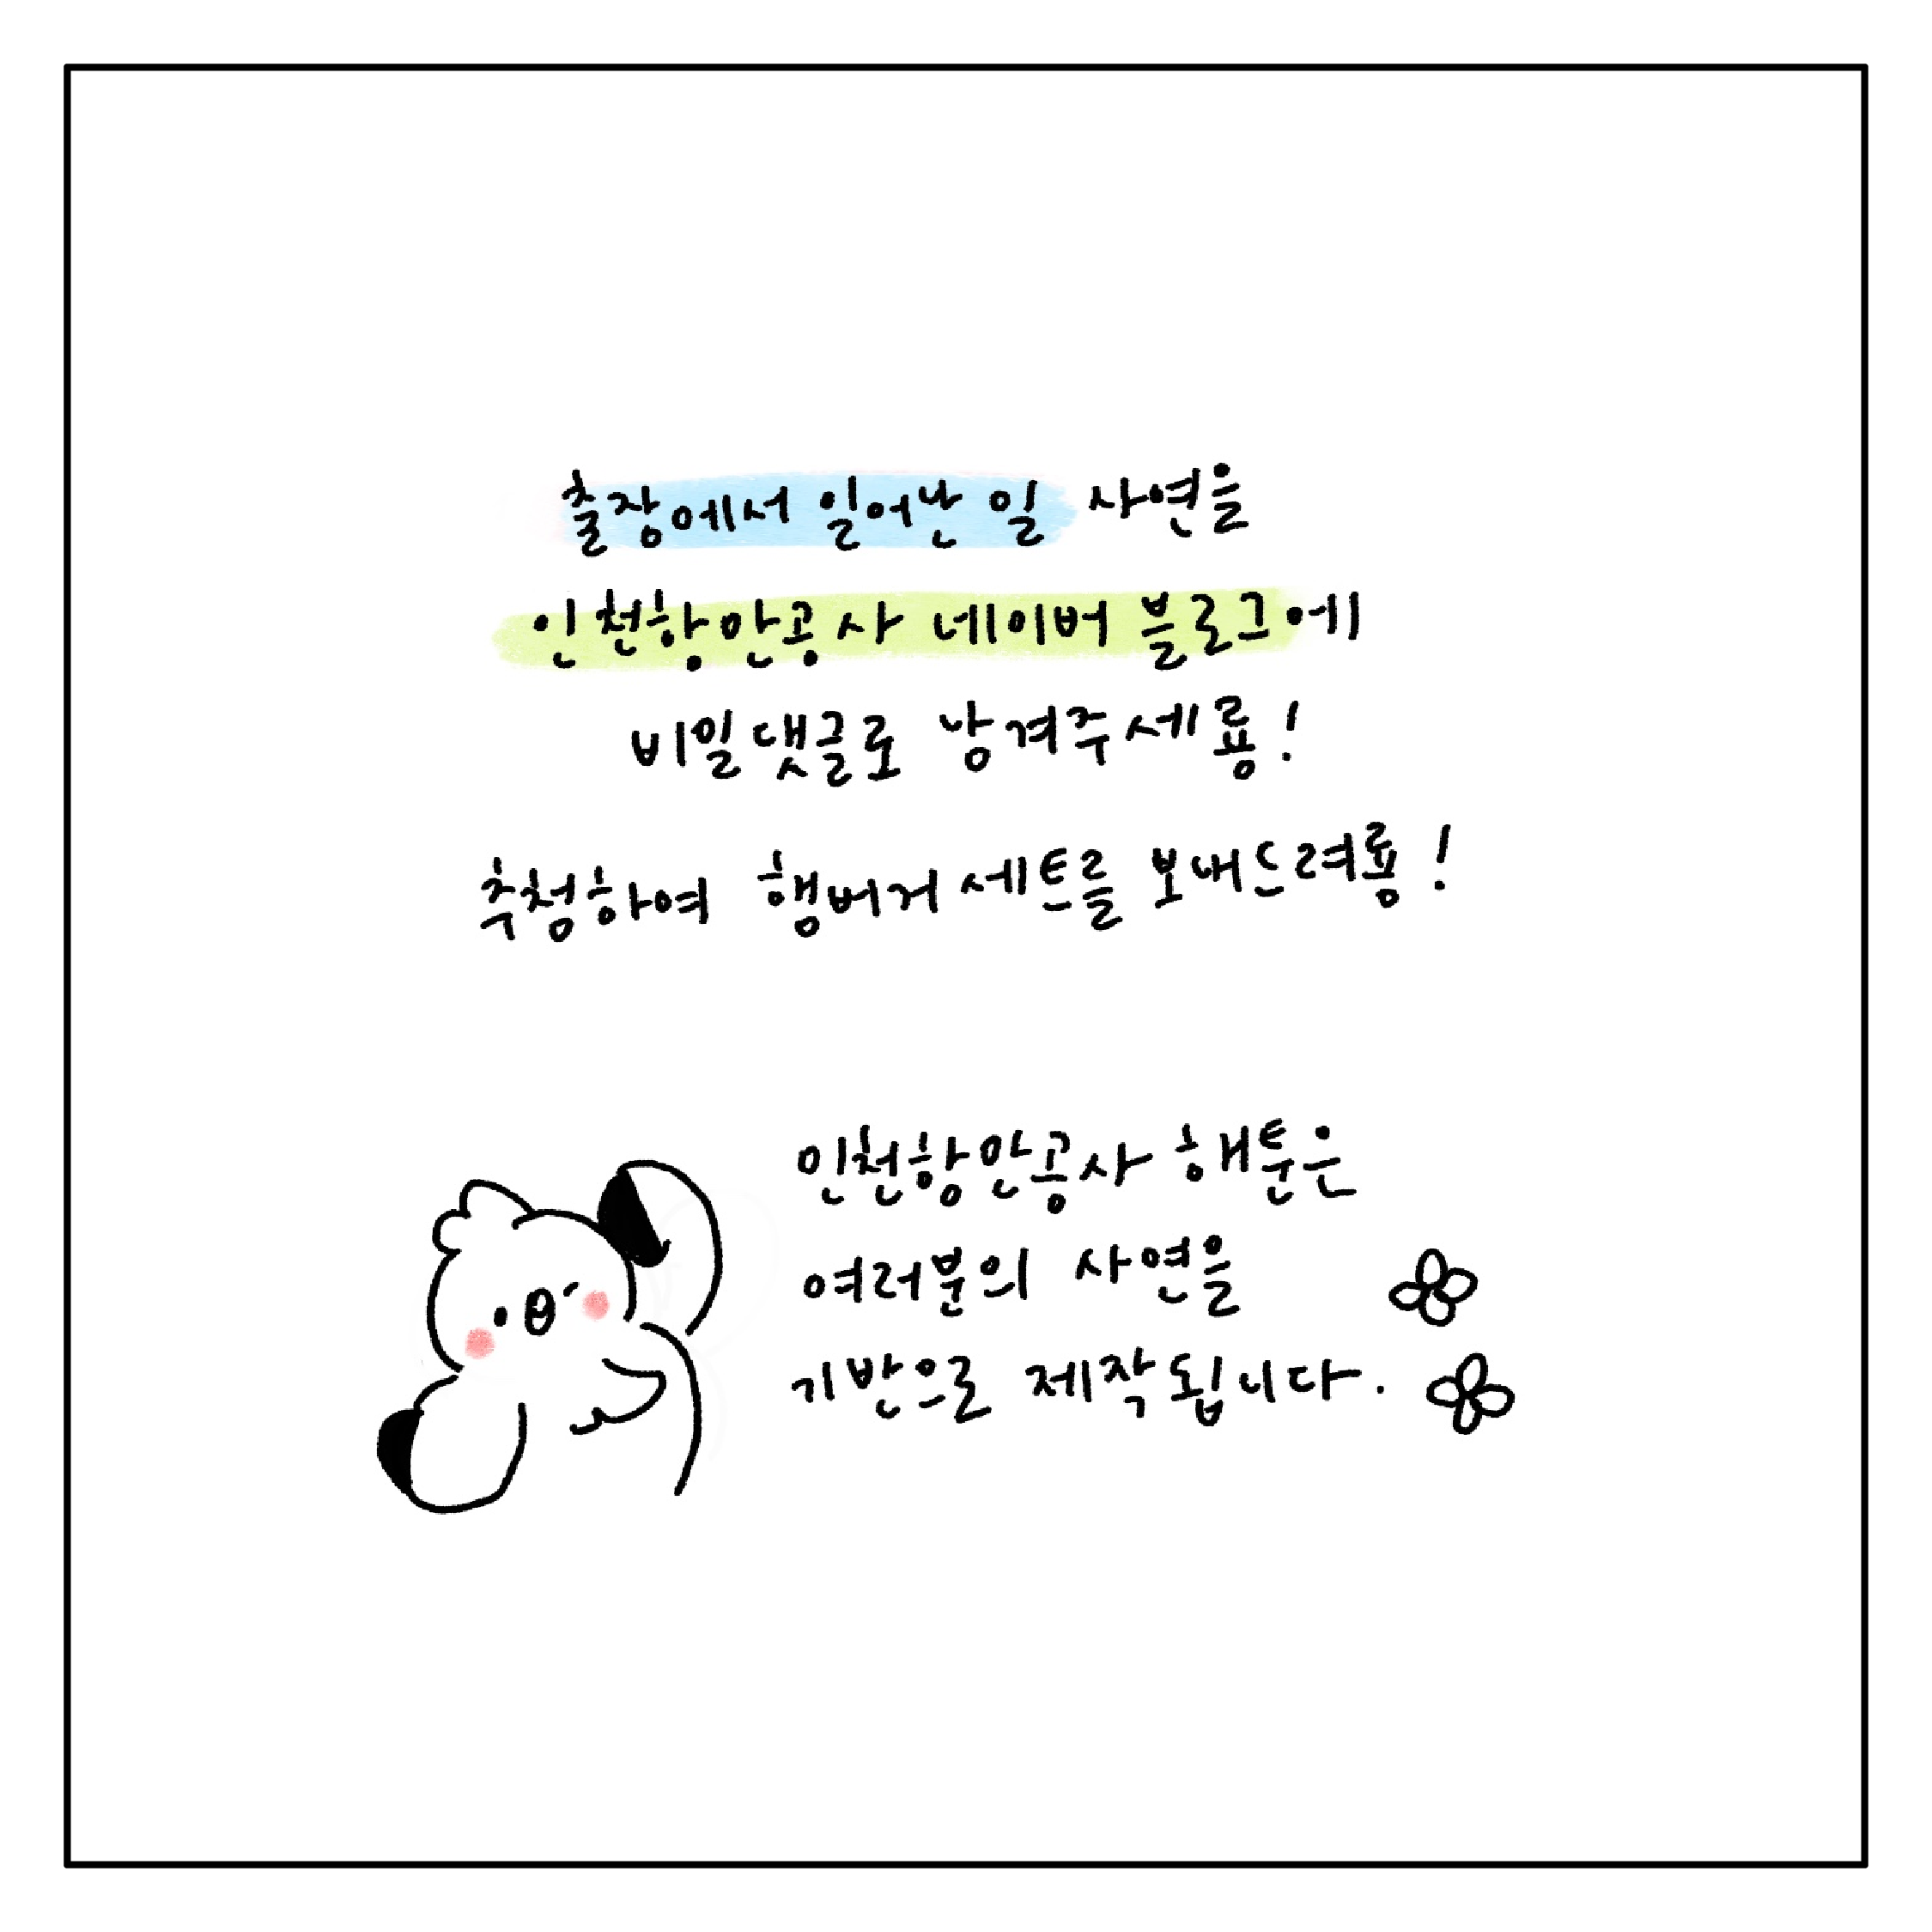 출장에서 일어난 일 사연을
인천항만공사 네이버 블로그에
비밀댓글로 남겨주세룡!
추첨하여 햄버거세트를 보내드려룡!
인천항만공사 해툰은
여러분의 사연을
기반으로 제작됩니다.